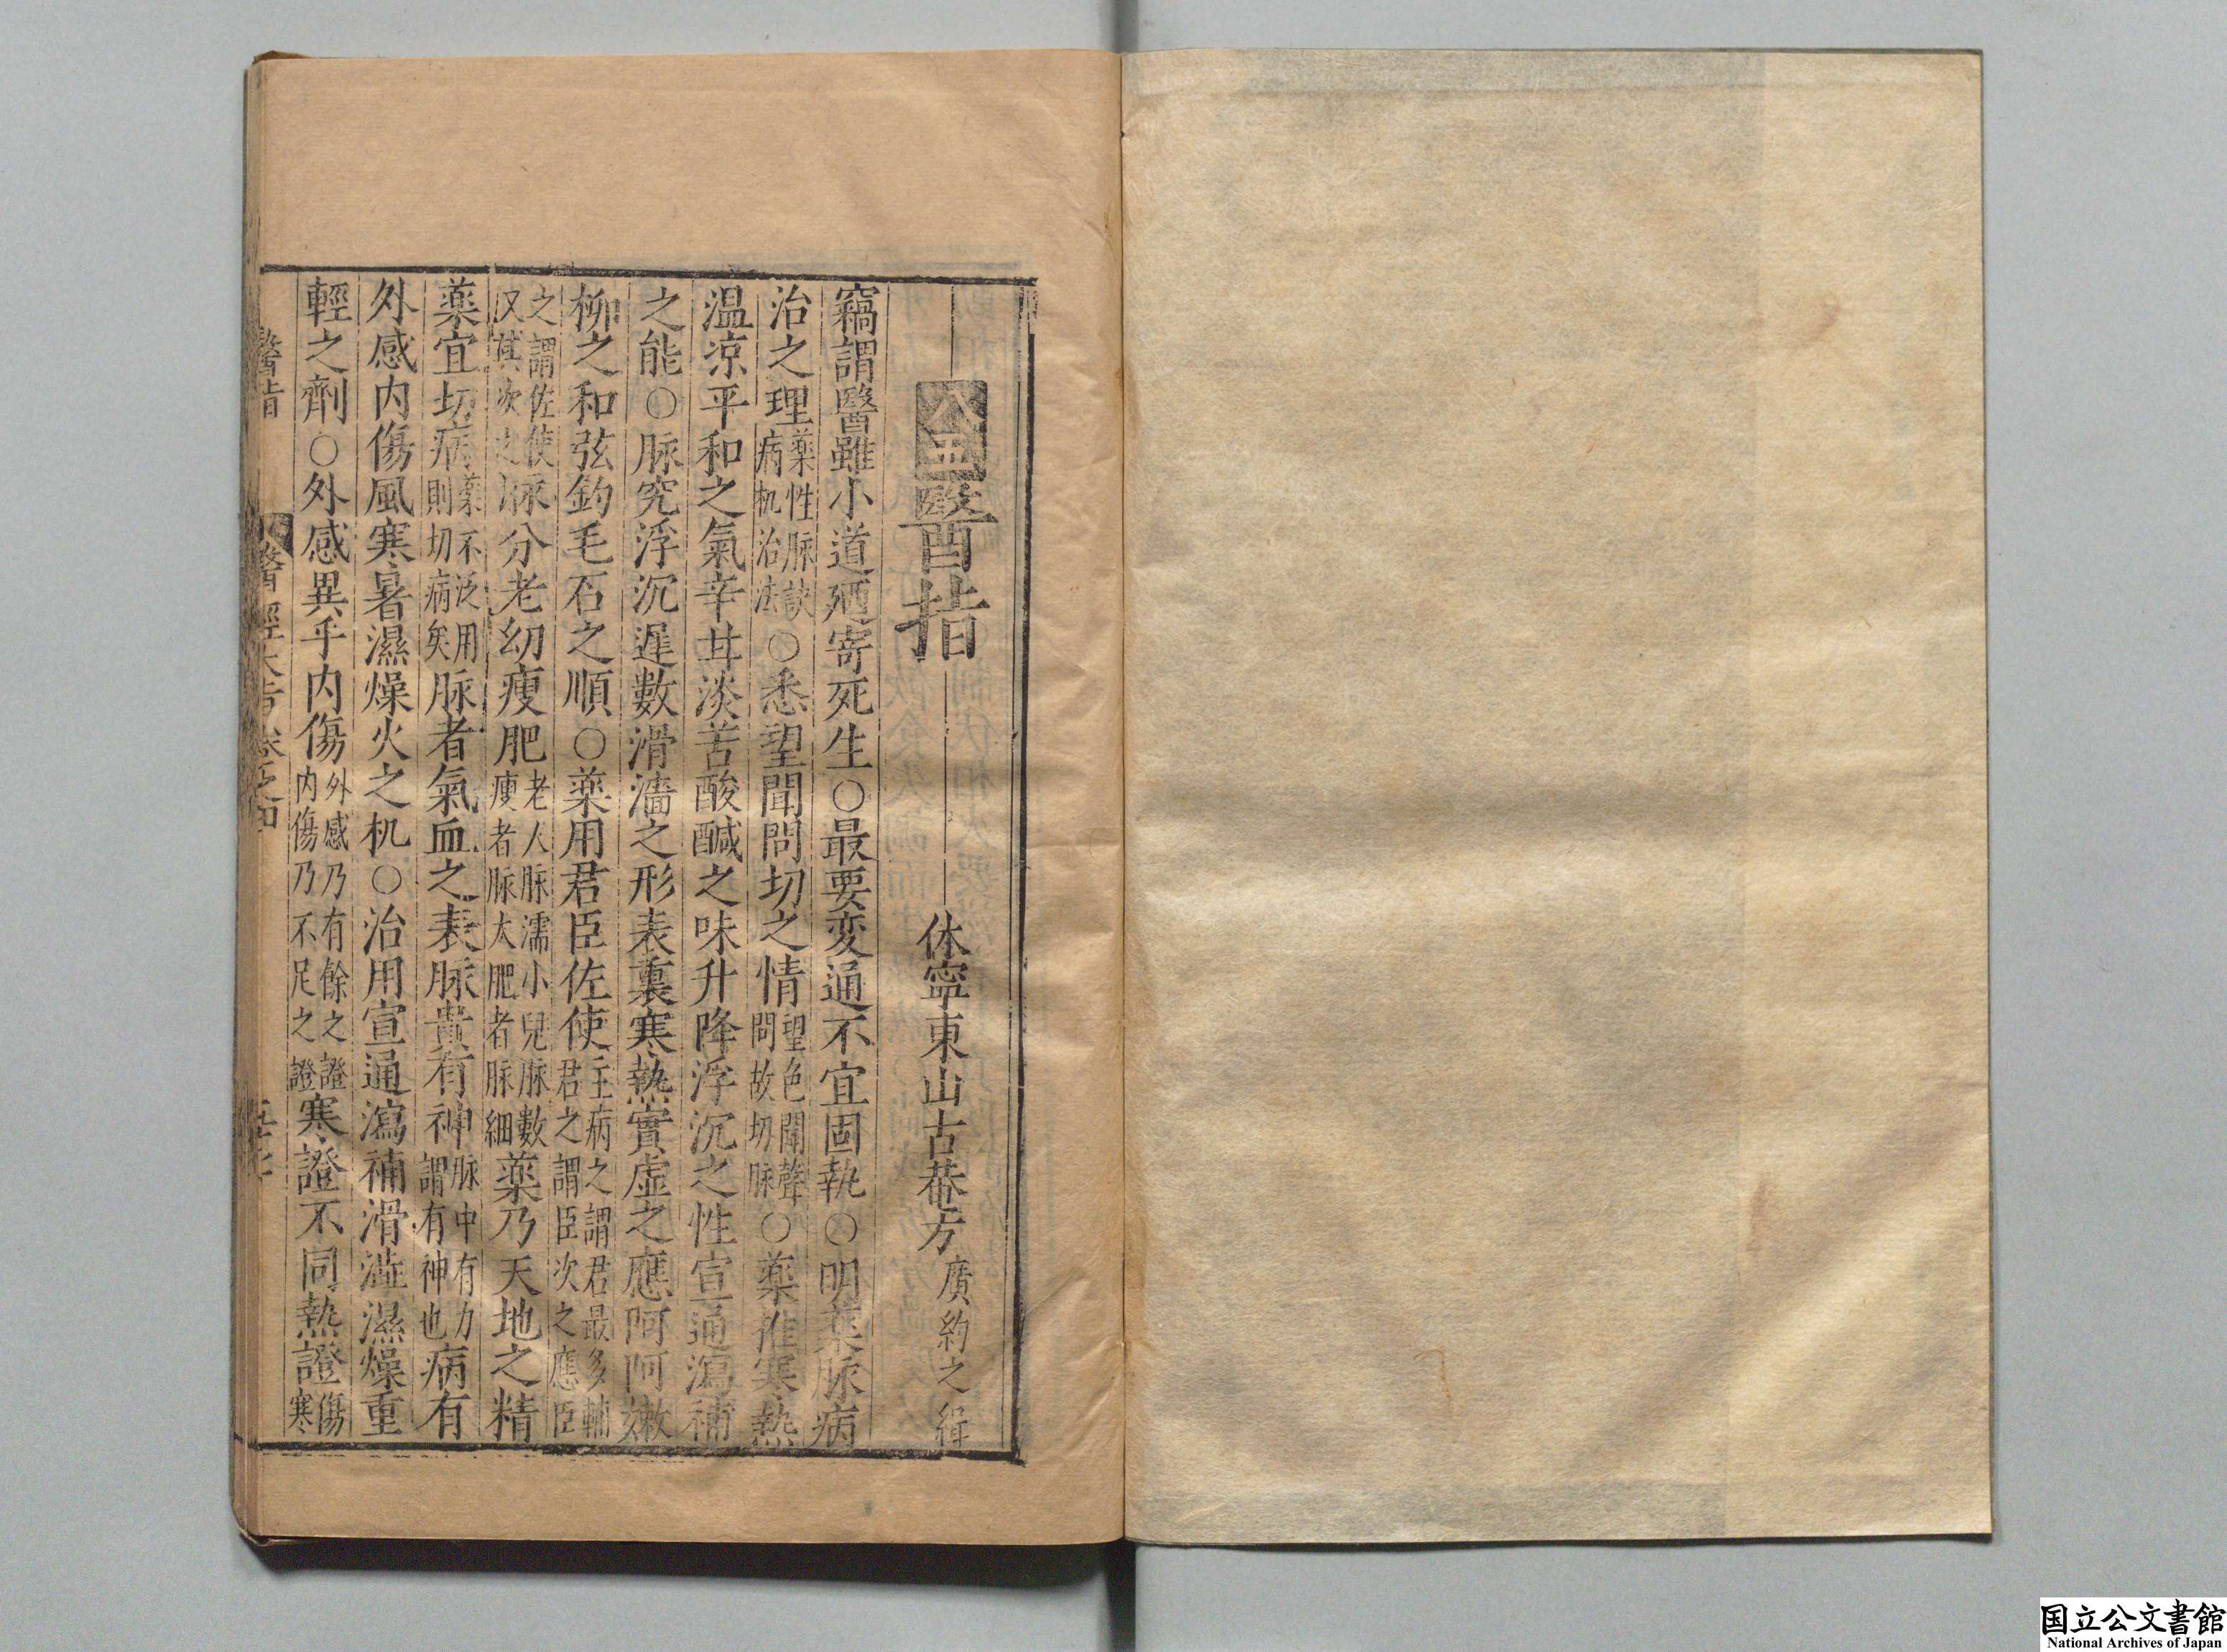 醫指
休寧東山古菴方廣約之緝
竊謂醫雖小道廼寄死生○最要変通不宜固執○明藥脉病
治之理藥性脉訣病机治法○悉望聞問切之情望色聞聲問故切脉○藥推寒熱
温凉平和之氣辛甘淡苦酸醎之味升降浮沉之性宣通瀉補
之能○脉究浮沉遲數滑濇之形表裏寒熱實虛之應阿阿嫩
柳之和弦鈎毛石之順○藥用君臣佐使主病之謂君最多輔君之謂臣次之應臣
之謂佐使又其次之脉分老幼瘦肥老人脉濡小兒脉數瘦者脉太肥者脉細藥乃天地之精
藥宜切病藥不泛用則切病矣脉者氣血之表脉貴有神脉中有力謂有神也病有
外感内傷風寒暑濕燥火之机○治用宣通瀉補滑澁濕燥重
輕之劑○外感異乎内傷外感乃有餘之證内傷乃不足之證寒證不同熱證傷寒
醫指
醫經大旨卷之四
国立公文書館
National Archives of Japan